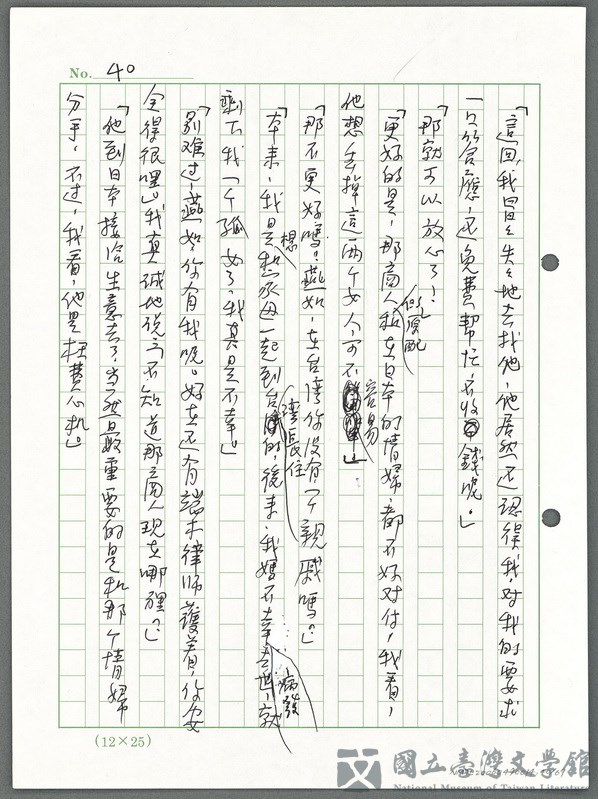 No. 40
「這回,我冒冒失失地去找他,他居然还認得我,对我的要求
一口答應,还免費幫忙,不收錢呢。」
「那就可以放心了!」
「更好的是,那商人和在日本的情婦,都不好对付,我看,
他想丟掉這两个女人,可不容易。」
「那不更好嗎!燕如,在台湾你没有一个親戚嗎?」
「本来,我是想和父母一起到台湾長住的,後来,我媽不幸病發去世,就
剩下我一个孤女了,我真是不幸。」
「别难过,燕如,你有我呢。好在还有端木律师護着,你安
全得很哩。」我真誠地说:「不知道那商人現在哪裡?」
「他到日本接洽生意去了,当然最重要的是和那个情婦
分手,不过,我看,他是枉費心机。」
(12×25)
國立臺灣文學館
National Museum of Taiwan Literature